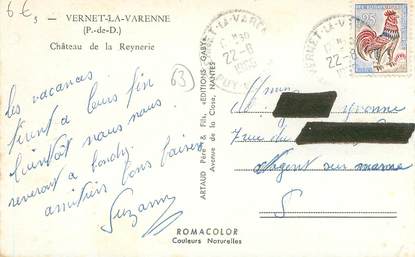 6 €
VERNET-LA-VARENNE
(P.-de-D.)
Château de la Reynerie
63
Les vacances
tirent à leurs fin
bientôt nous nous
reverrons à
amitiés bons baisers
Suzanne
ARTAUD Père & Fils, «EDITIONS GABY»
Avenue de la Close, NANTES
ROMACOLOR
Couleurs Naturelles
VERNET-LA-VAREN
22-8
22-8
0,25
Yvonne
7 rue du
Nogent sur marne
S